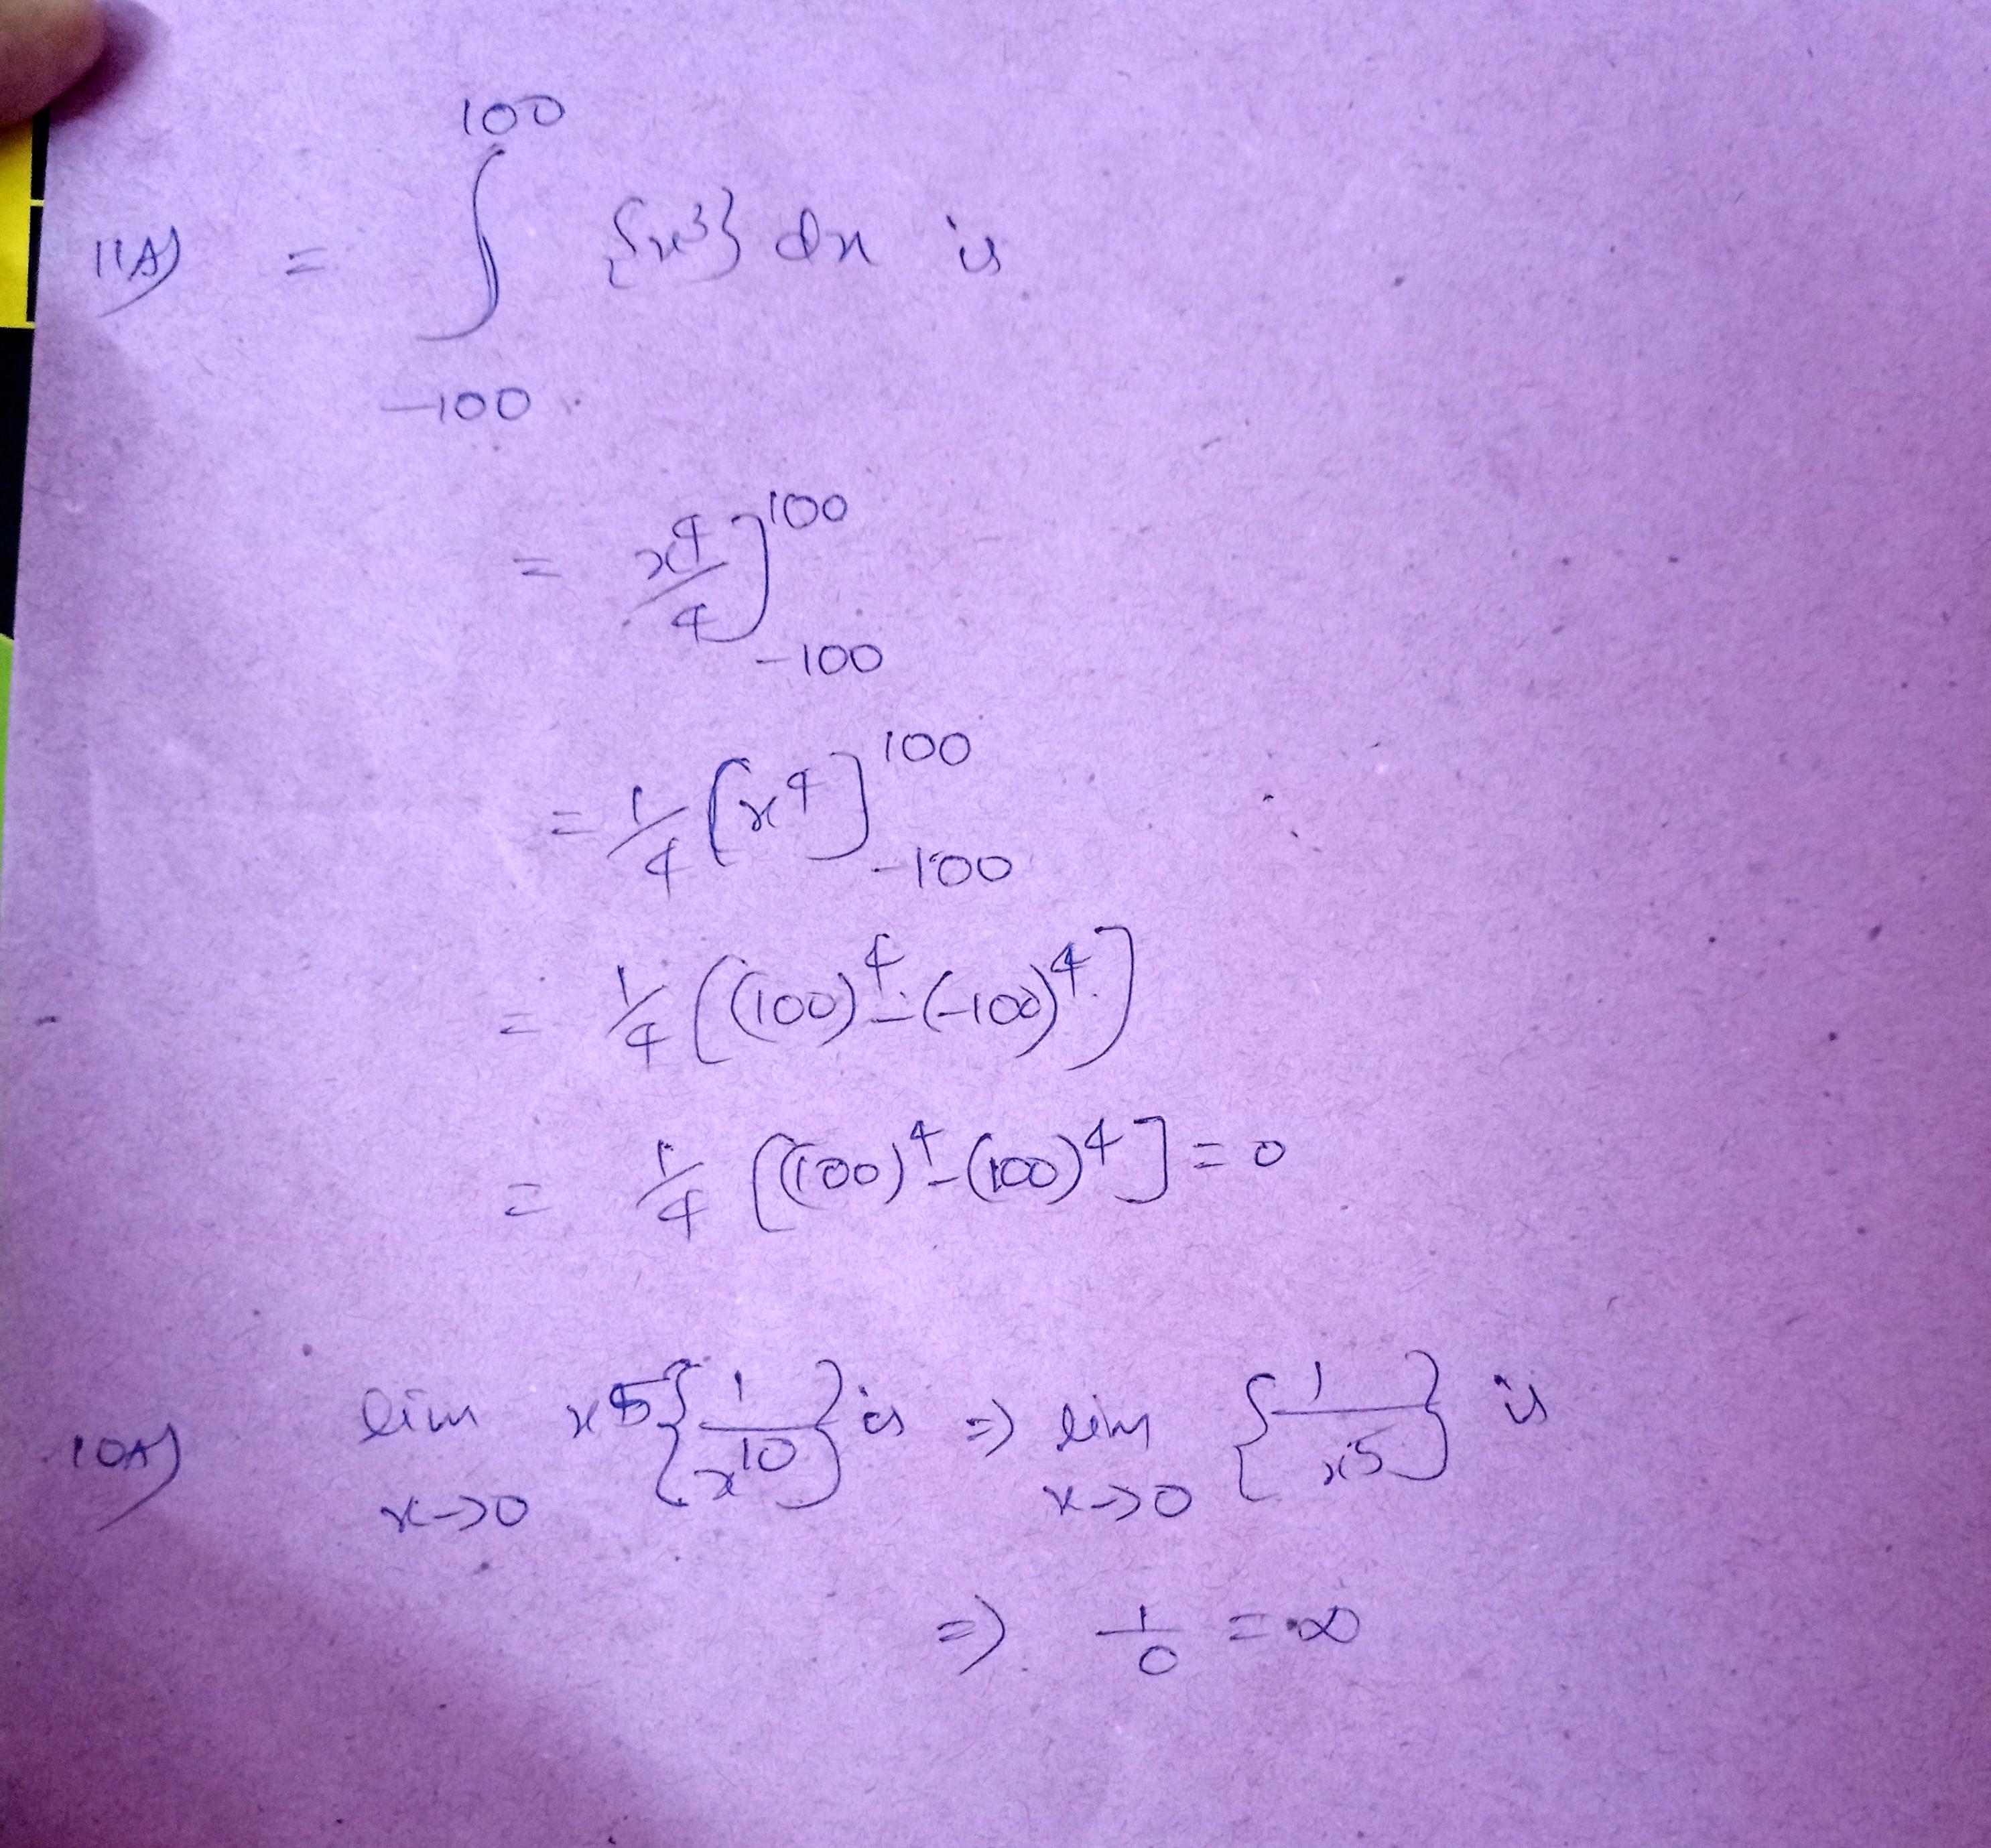 11A) = ∫_{-100}^{100} {x³} dx is
= x⁴/4 ]_{-100}^{100}
= 1/4 [x⁴]_{-100}^{100}
= 1/4 [(100)⁴ - (-100)⁴]
= 1/4 [(100)⁴ - (100)⁴] = 0
10A) lim_{x→0} x⁵ {1/x¹⁰} is ⇒ lim_{x→0} {1/x⁵} is
⇒ 1/0 = ∞